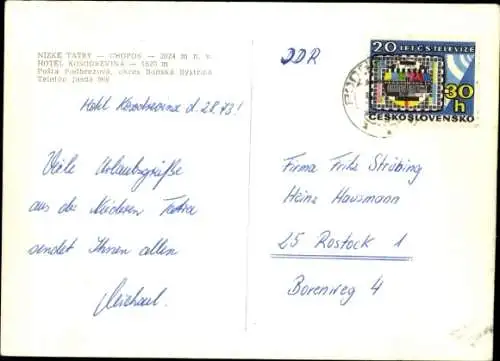 NÍZKE TATRY — CHOPOK — 2024 m n. v.
HOTEL KOSODREVINA — 1620 m
Pošta Podbrezová, okres Banská Bystrica
Telefón Jasná 968
DDR
20 LET ČS TELEVIZE
30 h
ČESKOSLOVENSKO
Hotel Kosodrevina d. 28.73!
Viele Urlaubsgrüße
aus der Niederen Tatra
sendet Ihnen allen
Michael.
Firma Fritz Strübing
Heinz Hausmann
25 Rostock 1
Borenweg 4